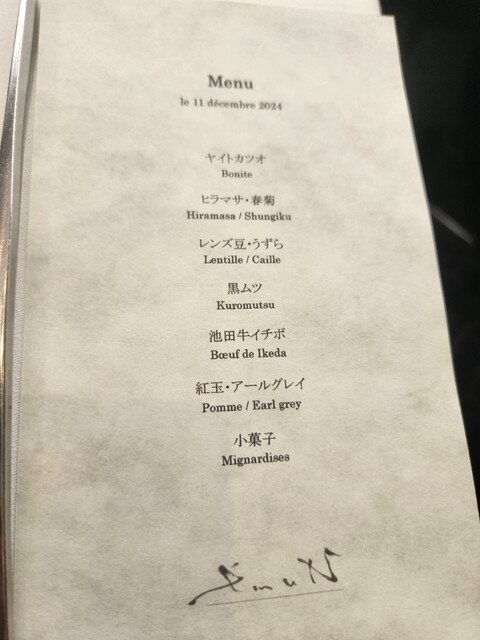 Menu
le 11 décembre 2024
ヤイトカツオ
Bonite
ヒラマサ・春菊
Hiramasa / Shungiku
レンズ豆・うずら
Lentille / Caille
黒ムツ
Kuromutsu
池田牛イチボ
Bœuf de Ikeda
紅玉・アールグレイ
Pomme / Earl grey
小菓子
Mignardises